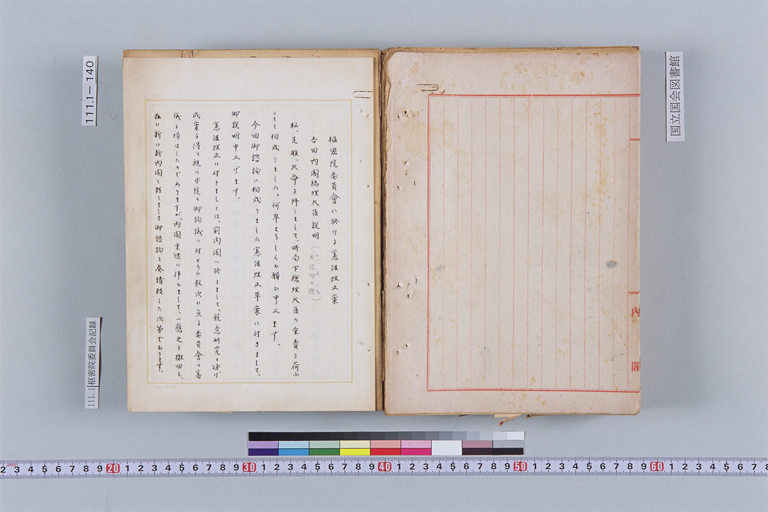 枢密院委員会に於ける憲法改正案
吉田内閣総理大臣説明
私、先般、大命を拝しまして、時局下総理大臣の重責を荷ふ
ことと相成りました。何卒よろしくお願ひ申上ます。
今回御諮詢に相成りました憲法改正草案に付きまして、
御説明申上げます。
憲法改正に付きましては、前内閣に於きまして、鋭意研究を遂げ
成案を得て既に本院の御諮詢に付せられ数次に亘る委員会の審
議を得ましたのでありますが、内閣更迭に伴ひまして、一応之を撤回し、
更に新内閣と致しまして御諮詢を奏請致した次第であります。
内閣
111.1-140
111.1 枢密院委員会記録
国立国会図書館
2 3 4 5 6 7 8 9 20 1 2 3 4 5 6 7 8 9 30 1 2 3 4 5 6 7 8 9 40 1 2 3 4 5 6 7 8 9 50 1 2 3 4 5 6 7 8 9 60 1 2 3 4 5 6 7 8